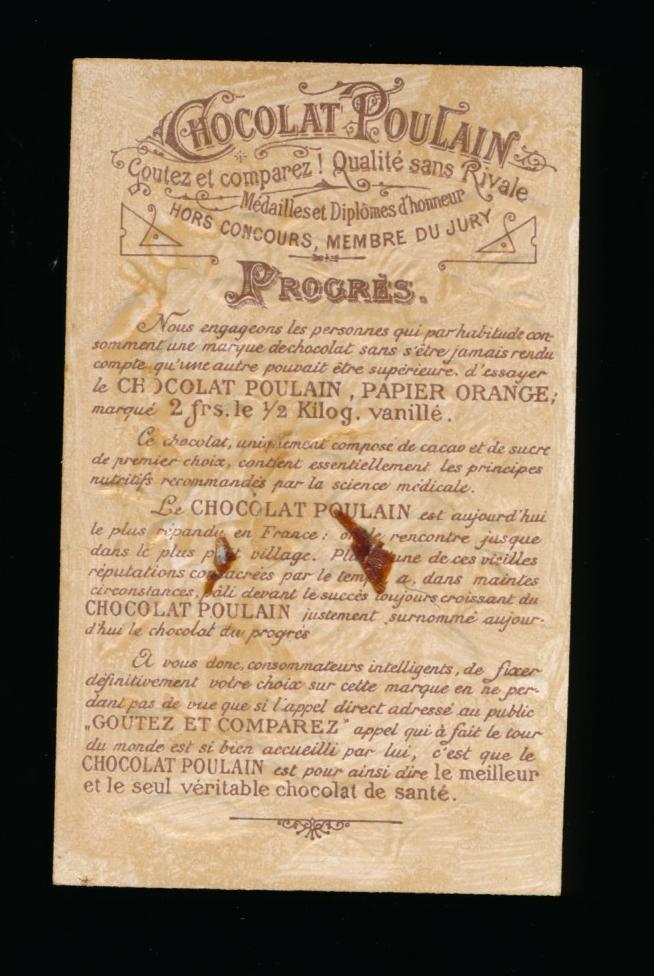 CHOCOLAT POULAIN
Goutez et comparez ! Qualité sans Rivale
Médailles et Diplômes d'honneur
HORS CONCOURS, MEMBRE DU JURY
PROGRÈS.
Nous engageons les personnes qui par habitude con-
somment une marque de chocolat sans s'être jamais rendu
compte qu'une autre pouvait être supérieure, d'essayer
le CHOCOLAT POULAIN, PAPIER ORANGE;
marqué 2 frs. le ½ Kilog. vanillé.
Ce chocolat, uniquement composé de cacao et de sucre
de premier choix, contient essentiellement les principes
nutritifs recommandés par la science médicale.
Le CHOCOLAT POULAIN est aujourd'hui
le plus répandu en France: on le rencontre jusque
dans le plus petit village. Plus d'une de ces vieilles
réputations consacrées par le temps a, dans maintes
circonstances, pâli devant le succès toujours croissant du
CHOCOLAT POULAIN justement surnommé aujour-
d'hui le chocolat du progrès
A vous donc, consommateurs intelligents, de fixer
définitivement votre choix sur cette marque en ne per-
dant pas de vue que si l'appel direct adressé au public
„GOUTEZ ET COMPAREZ" appel qui à fait le tour
du monde est si bien accueilli par lui, c'est que le
CHOCOLAT POULAIN est pour ainsi dire le meilleur
et le seul véritable chocolat de santé.